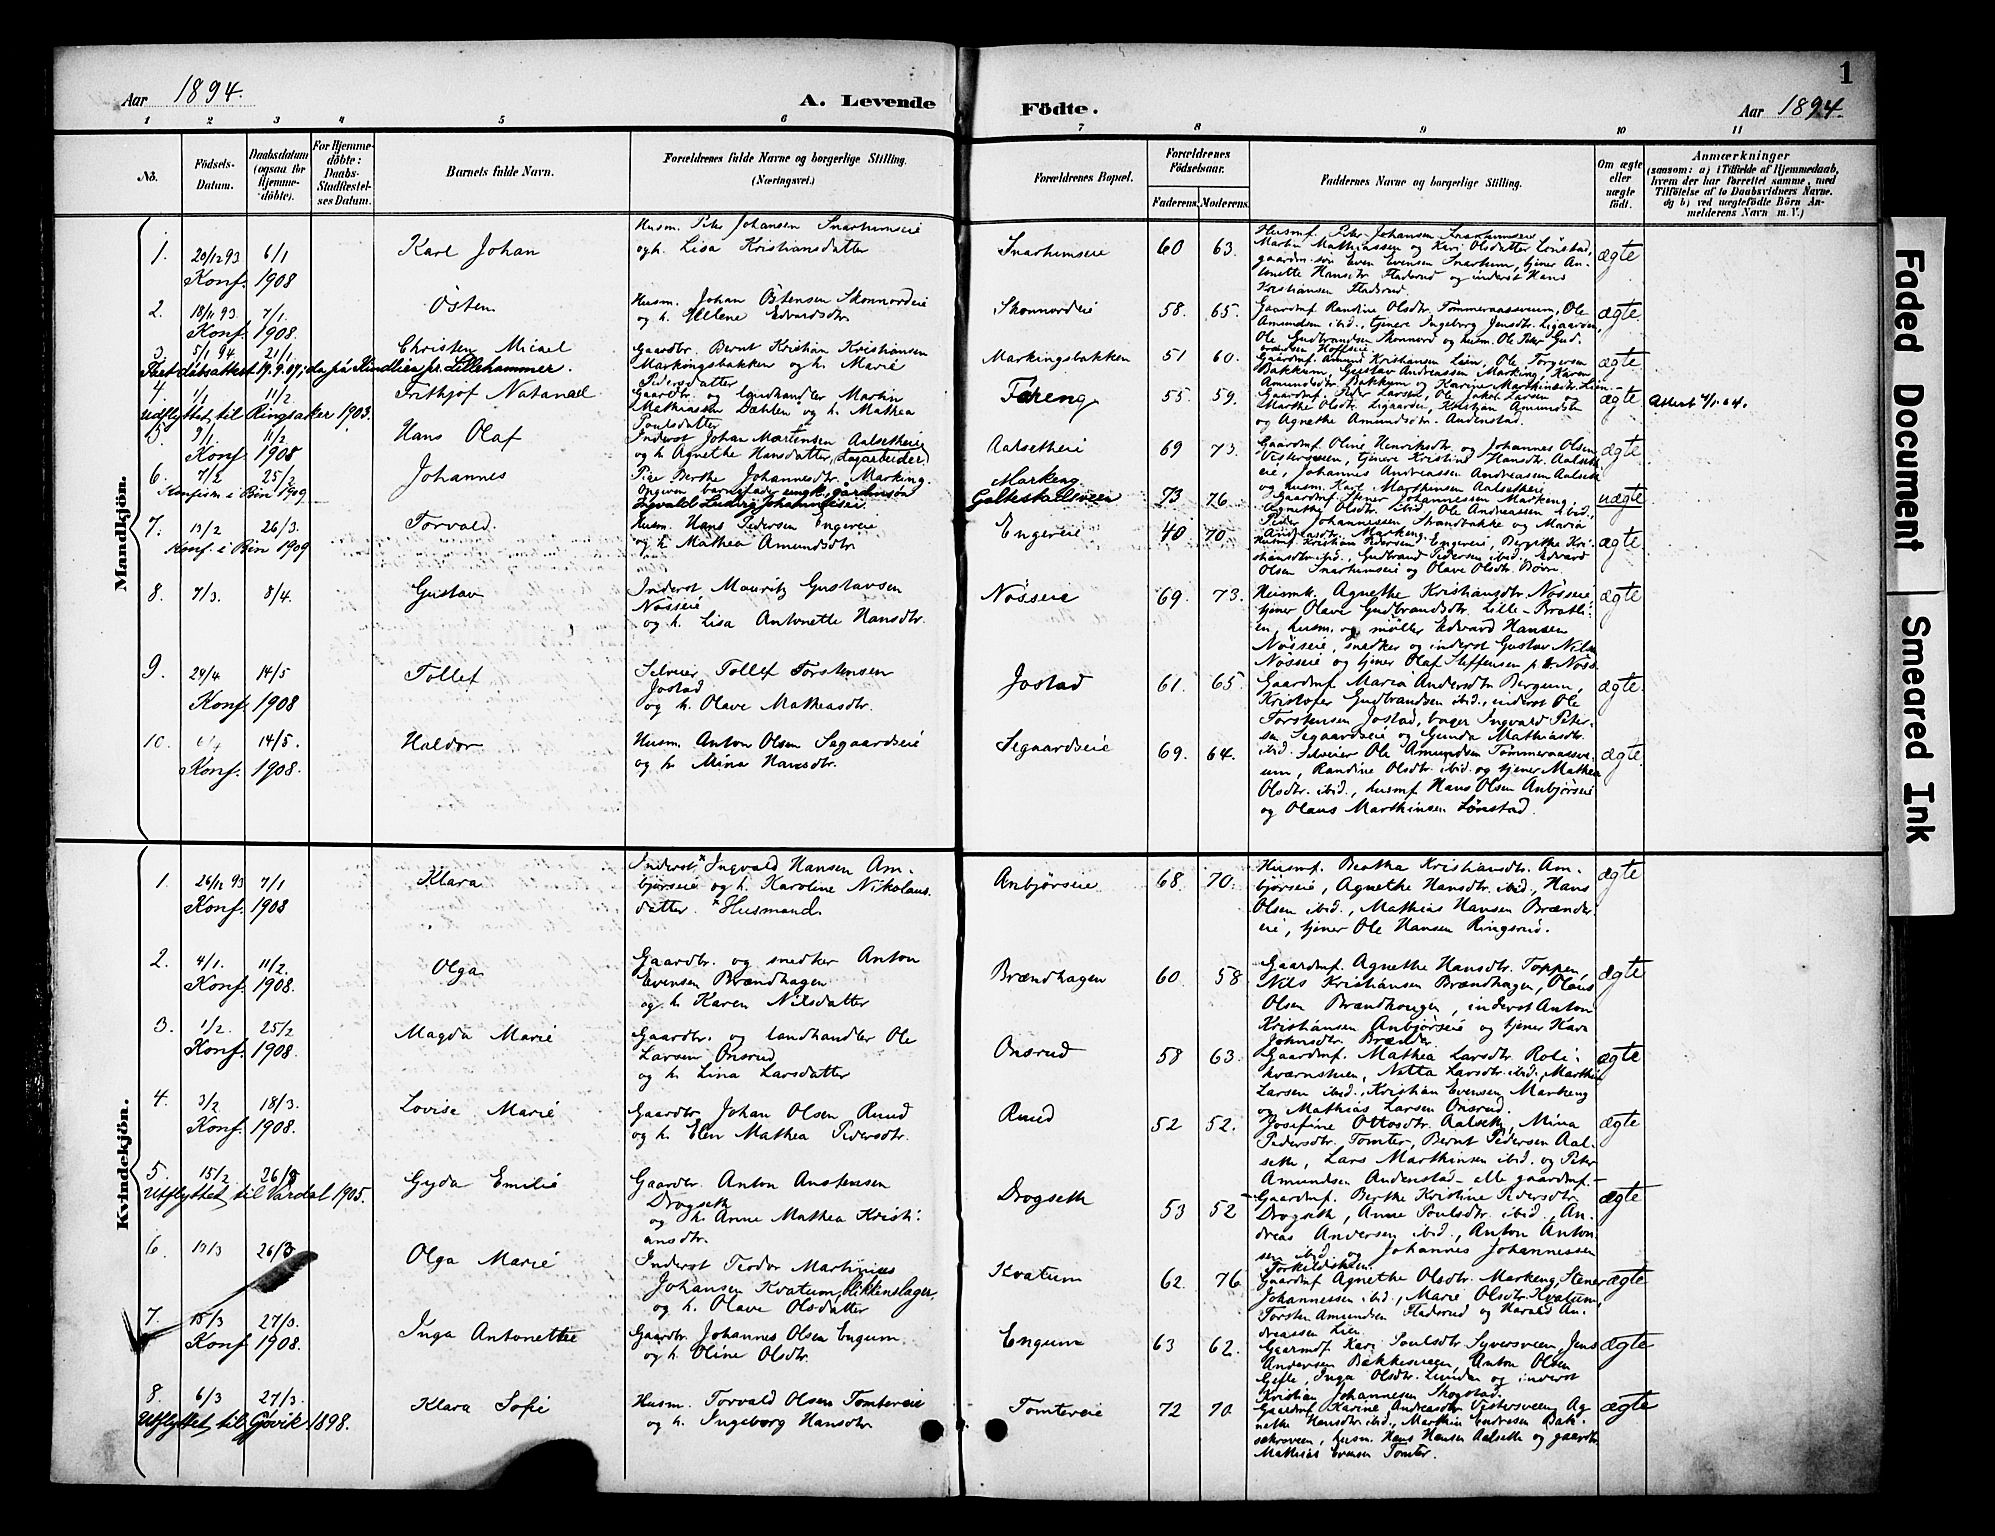 1
Aar 1894.
A. Levende Födte.
Aar 1894.
1 2 3 4 5 6 7 8 9 10 11
No.
Födsels-Datum.
Daabsdatum (ogsaa for Hjemme-döbte).
For Hjemme-döbte: Daabs-Stadfæstel-ses Datum.
Barnets fulde Navn.
Forældrenes fulde Navne og borgerlige Stilling. (Næringsvei.)
Forældrenes Bopæl.
Forældrenes Födselsaar.
Faderens. Moderens.
Faddernes Navne og borgerlige Stilling.
Om ægte eller uægte födt.
Anmærkninger
(saasom: a) i Tilfælde af Hjemmedaab, hvem der har forrettet samme, med Tilföielse af to Daabsvidners Navne, og b) ved uægtefödte Börn An-melderens Navn m. V.)
Mandkjön.
1. 20/12 93 6/1 Karl Johan
Husm. Peter Johansen Snarhumseie
og h. Lisa Kristiansdatter
Snarhumseie 60 63.
Husmf. Peter Johansen Snarhumseie
Martin Mathiassen og Kari Olsdatter Lönstad,
gaardm. sön Even Evensen Snarhum, tjener An-
tonette Hansdtr. Fladsrud og inderst Hans
Kristiansen Fladsrud.
ægte
Konf. 1908
2. 18/11 93. 7/1. Östen
Husm. Johan Östensen Skonnordeie
og h. Helene Edvardsdtr.
Skonnordeie 58. 65.
Gaardmf. Randine Olsdtr. Tömmeraasveum, Ole
Amundsen ibid., tjener Ingeborg Jensdtr. Ligaarden,
Ole Gudbrandsen Skonnord og husm. Ole Peter Gud-
brandsen Hoffseie
ægte
Konf. 1908.
3. 5/1 94. 21/1. Christen Micael
Gaardbr. Bernt Kristian Kristiansen
Markingsbakken og h. Marie
Pedersdatter
Markingsbakken 51 60.
Gaardmf. Amund Kristiansen Lien, Ole Torgersen
Bakkum, Gustav Andreassen Marking, Karen
Amundsdtr. Bakkum og Karine Marthinsdtr. Lien-
ægte
4. 1/1 11/2 Frithjof Natanael
Gaardbr. og landhandler Martin
Mathiassen Dæhlen og h. Mathea
Poulsdatter
Færeng 55. 59.
Gaardmf. Peder Larsen, Ole Jakob Larsen
Marthe Olsdtr. Ligaarden, Kristian Amundsen
og Agnethe Amundsdtr. Andenstad.
ægte
Udflyttet til Ringsaker 1903.
5. 9/1. 11/2. Hans Olaf
Inderst Johan Martensen Aalsetheie
og h. Agnethe Hansdatter, dagarbeider
Aalsetheie 69 73.
Gaardmf. Oline Henriksdtr. og Johannes Olsen
Vestersveen, tjener Kristine Hansdtr. Aalseth-
eie, Johannes Andreassen Andreassen Aalseth
og husm. Karl Marthinsen Aalsetheie
ægte
Konf. 1908
6. 7/2 25/2 Johannes
Pige Berthe Johannesdtr. Marking.
Opgiven barnefader ungk. gårdmsøn
Ingvald Ludvig Johannessen
Markeng
73 76
Gaardmf. Stener Johannessen Markeng,
Agnethe Olsdtr. ibid, Ole Andreassen ibid,
Peder Johannessen Strandbakke og Maria
Andreasdtr. Markeng.
uægte
Konfirm. i Biri 1909
7. 13/2 26/3. Torvald.
Husm. Hans Pedersen Engereie
og h. Mathea Amundsdtr.
Engereie 40 70.
Husmf. Kristian Pedersen Engereie, Berghite Kri-
stiansdtr. ibid., Gudbrand Pedersen ibid, Edvard
Olsen Snarhumseie og Olave Olsdtr. Bövre.
ægte
Konf. i Biri 1909
8. 7/3. 8/4. Gustav
Inderst Mauritz Gustavsen
Nösseie
og h. Lisa Antonette Hansdtr.
Nösseie 69. 73.
Husmk. Agnethe Kristiansdtr. Nösseie
tjener Olave Gudbrandsdtr. Lille-Bratli-
en, husm. og möller Edvard Hansen
Nösseie, snedker og inderst Gustav Nils
Nösseie og tjener Olaf Steffensen
ægte
9. 24/4 14/5 Tollef
Selveier Tollef Torstensen
Jostad
og h. Olave Matheasdtr.
Jostad 61. 65.
Gaardmf. Maria Andersdtr. Bergum,
Kristofer Gudbrandsen ibid., inderst Ole
Torstensen Jostad, bager Ingvald Peter-
sen Segaardseie og Gunda Mathiasdtr.
ibid.
ægte
Konf. 1908
10. 14/5. Haldor
Husm. Anton Olsen Segaardseie
og h. Mina Hansdtr.
Segaardseie 69. 64.
Selveier Ole Amundsen Tömmeraasve-
um, Randine Olsdtr. ibid. og tjener Mathea
Olsdtr. ibid., husmf. Hans Olsen Anbjörseie
og Olaus Marthinsen Lönstad.
ægte
Konf. 1908.
Kvindekjön.
1. 26/12 93 7/1 Klara
Inderst × Ingvald Hansen Am-
bjørseie og h. Karoline Nikolaus-
datter. × Husmand.
Anbjörseie 68. 70.
Husmf. Bertha Kristiansdtr. Am-
bjørseie, Agnethe Hansdtr. ibid., Hans
Olsen ibid., Mathias Hansen Brænder-
eie, tjener Ole Hansen Ringsrud.
ægte
Konf. 1908
2. 4/1. 11/2. Olga
Gaardbr. og snedker Anton
Evensen Brændhagen
og h. Karen Nilsdatter
Brændhagen 60. 58
Gaardmf. Agnethe Hansdtr. Toppen,
Nils Kristiansen Brændhagen, Olaus
Olsen Brændhaugen, inderst Anton
Kristiansen Anbjørseie og tjener Kari
Johnsdtr. Brænder
ægte
Konf. 1908.
3. 1/2. 25/2 Magda Marie
Gaardbr. og landhandler Ole
Larsen Onsrud
og h. Lina Larsdatter
Onsrud 58 63.
Gaardmf. Mathea Larsdtr. Roli-
kværnstuen, Netta Larsdtr. ibid., Marthin
Larsen ibid., Kristian Evensen Markeng
og Mathias Larsen Onsrud.
ægte
Konf. 1908.
4. 3/2 18/3. Lovise Marie
Gaardbr. Johan Olsen Ruud
og h. Elen Mathea Pedersdtr.
Ruud 52 52.
Josefine Ottosdtr. Aalseth, Mina
Pedersdtr. Tomter, Bernt Pedersen Aal-
seth, Lars Marthinsen ibid. og Peter
Amundsen Andenstad - alle gaardmf-
ægte
Konf. 1908.
5. 15/2 26/3 Gyda Emilie
Gaardbr. Anton Anstensen
Drogseth
og h. Anne Mathea Kristi-
ansdtr.
Drogseth 53 52
Gaardmf. Berthe Kristine Pedersdtr.
Drogseth, Anne Poulsdtr. ibid., An-
dreas Andersen ibid., Anton Anton-
sen ibid. og Johannes Johannessen
ægte
Utflyttet til Vardal 1905.
6. 13/3 26/3 Olga Marie
Inderst Teodor Martinius
Johansen Kvatum, blikkenslager,
og h. Olave Olsdatter
Kvatum 62. 76
Gaardmf. Agnethe Olsdtr. Markeng, Stener
Johannessen ibid., Marie Olsdtr. Kvatum,
Torsten Amundsen Fladsrud og Harald An-
dreassen Lien
ægte
7. 15/3 27/3. Inga Antonette
Gaardbr. Johannes Olsen Engum
og h. Oline Olsdtr.
Engum 63 62.
Gaarmdf. Kari Poulsdtr. Syversveen, Jens
Andersen Bakkehagen, Anton Olsen
Gefle, Inga Olsdtr. Lunden og inderst
Kristian Johannesen Skogstad.
ægte
Konf 1908.
8. 6/3 27/3. Klara Sofie
Husm. Torvald Olsen Tomtereie
og h. Ingeborg Hansdtr.
Tomtereie 72 70
Gaardmf. Karine Andreasdtr. Vestersveen, Ag-
nethe Hansdtr. ibid., Marthin Endresen Bak-
sekreveen, husm. Hans Hansen Aalseth og gaardbr.
Mathias Evensen Tomter.
ægte
Utflyttet til Gjøvik 1898.
Faded Document
Smeared Ink